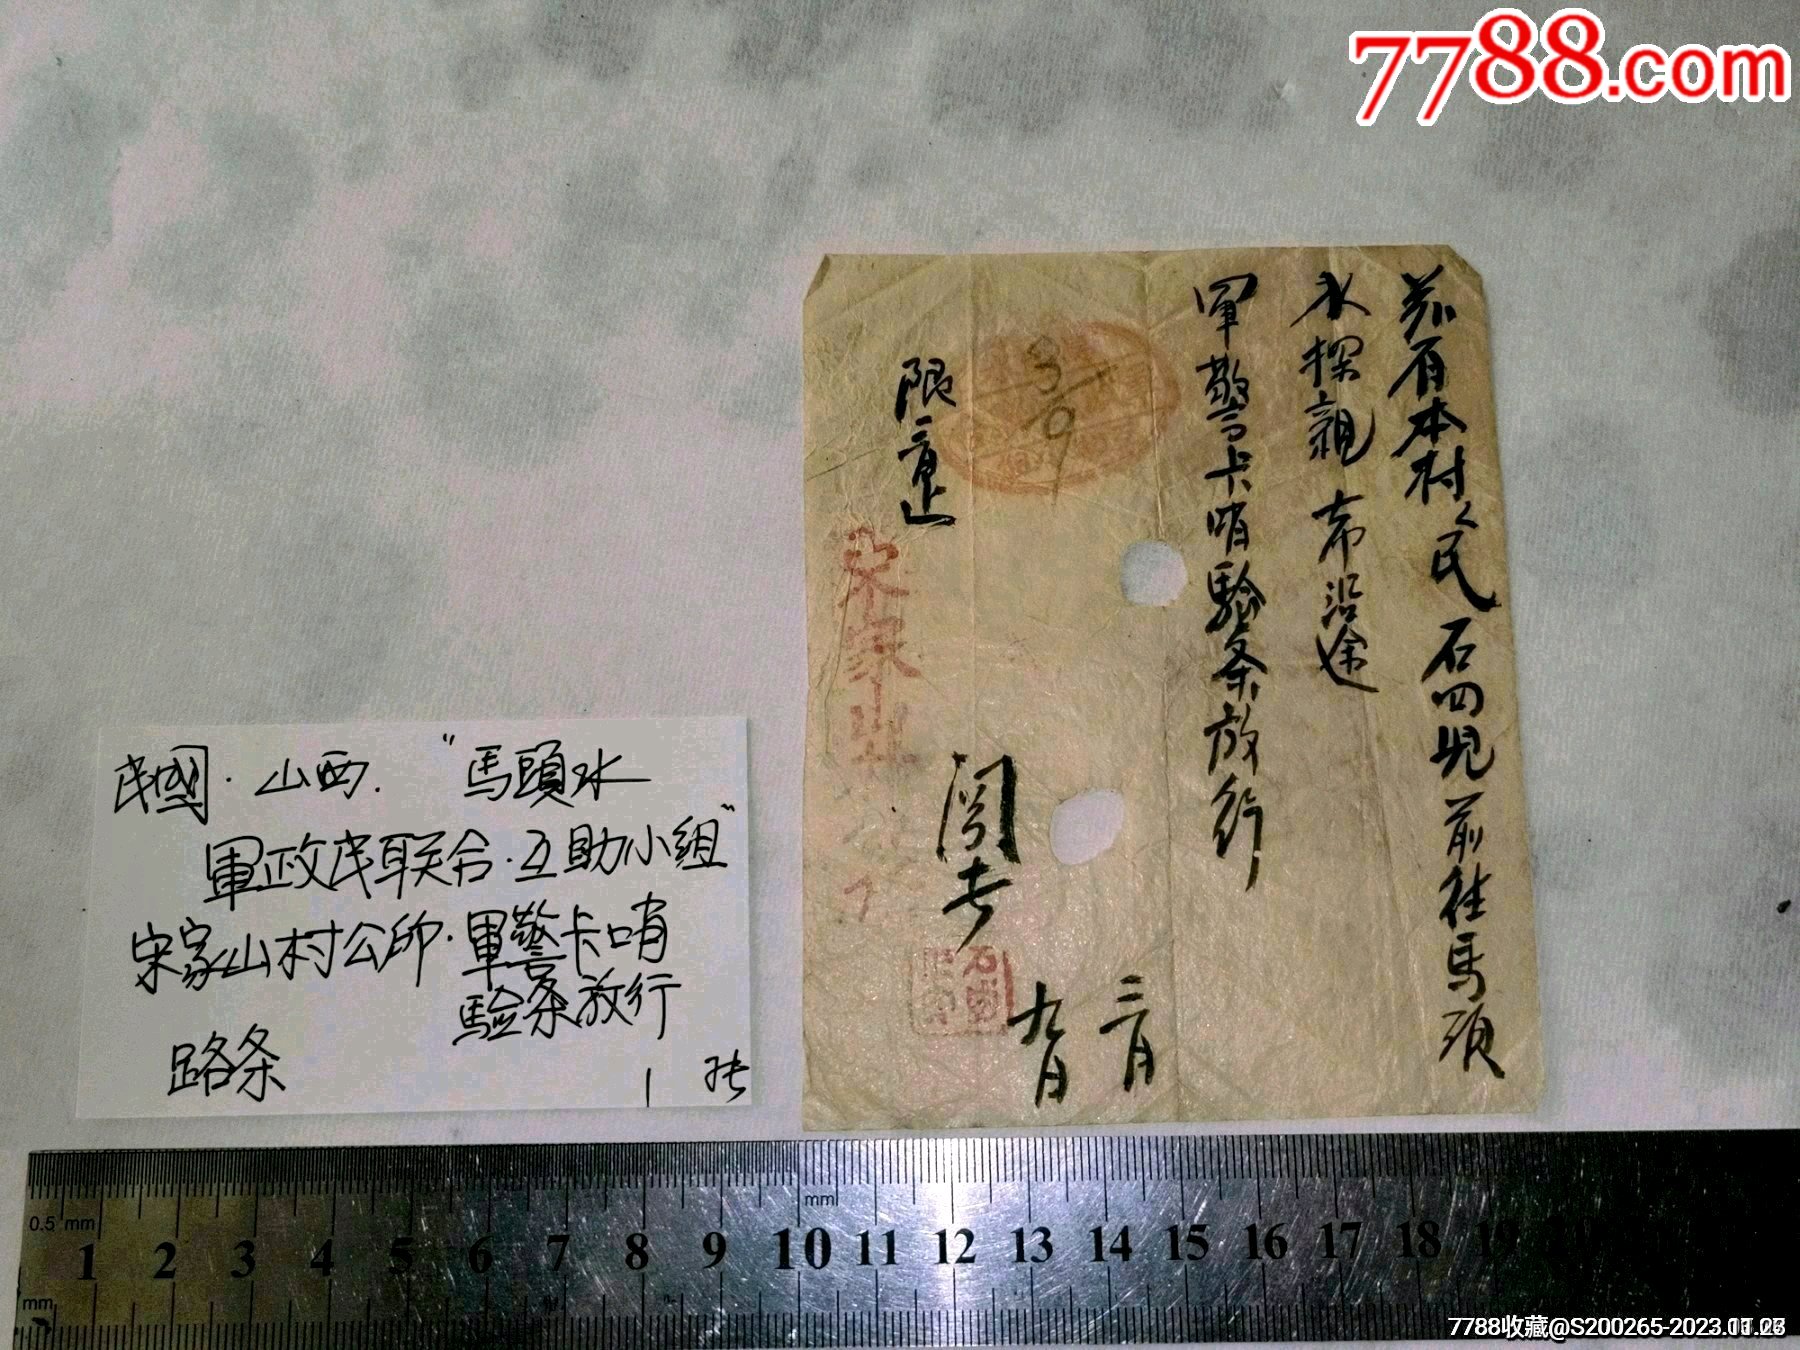 7788.com
茲有本村人民石四児前往馬頭
水探親希沿途
軍警卡哨驗条放行
限三月止
宋家山
三月
九日
3/9
民國·山西.“馬頭水
軍政民联合·互助小組”
宋家山村公所·軍警卡哨
驗条放行
路条
1 张
0.5 mm
mm
mm
1 2 3 4 5 6 7 8 9 10 11 12 13 14 15 16 17 18 19
7788收藏@S200265-2023.